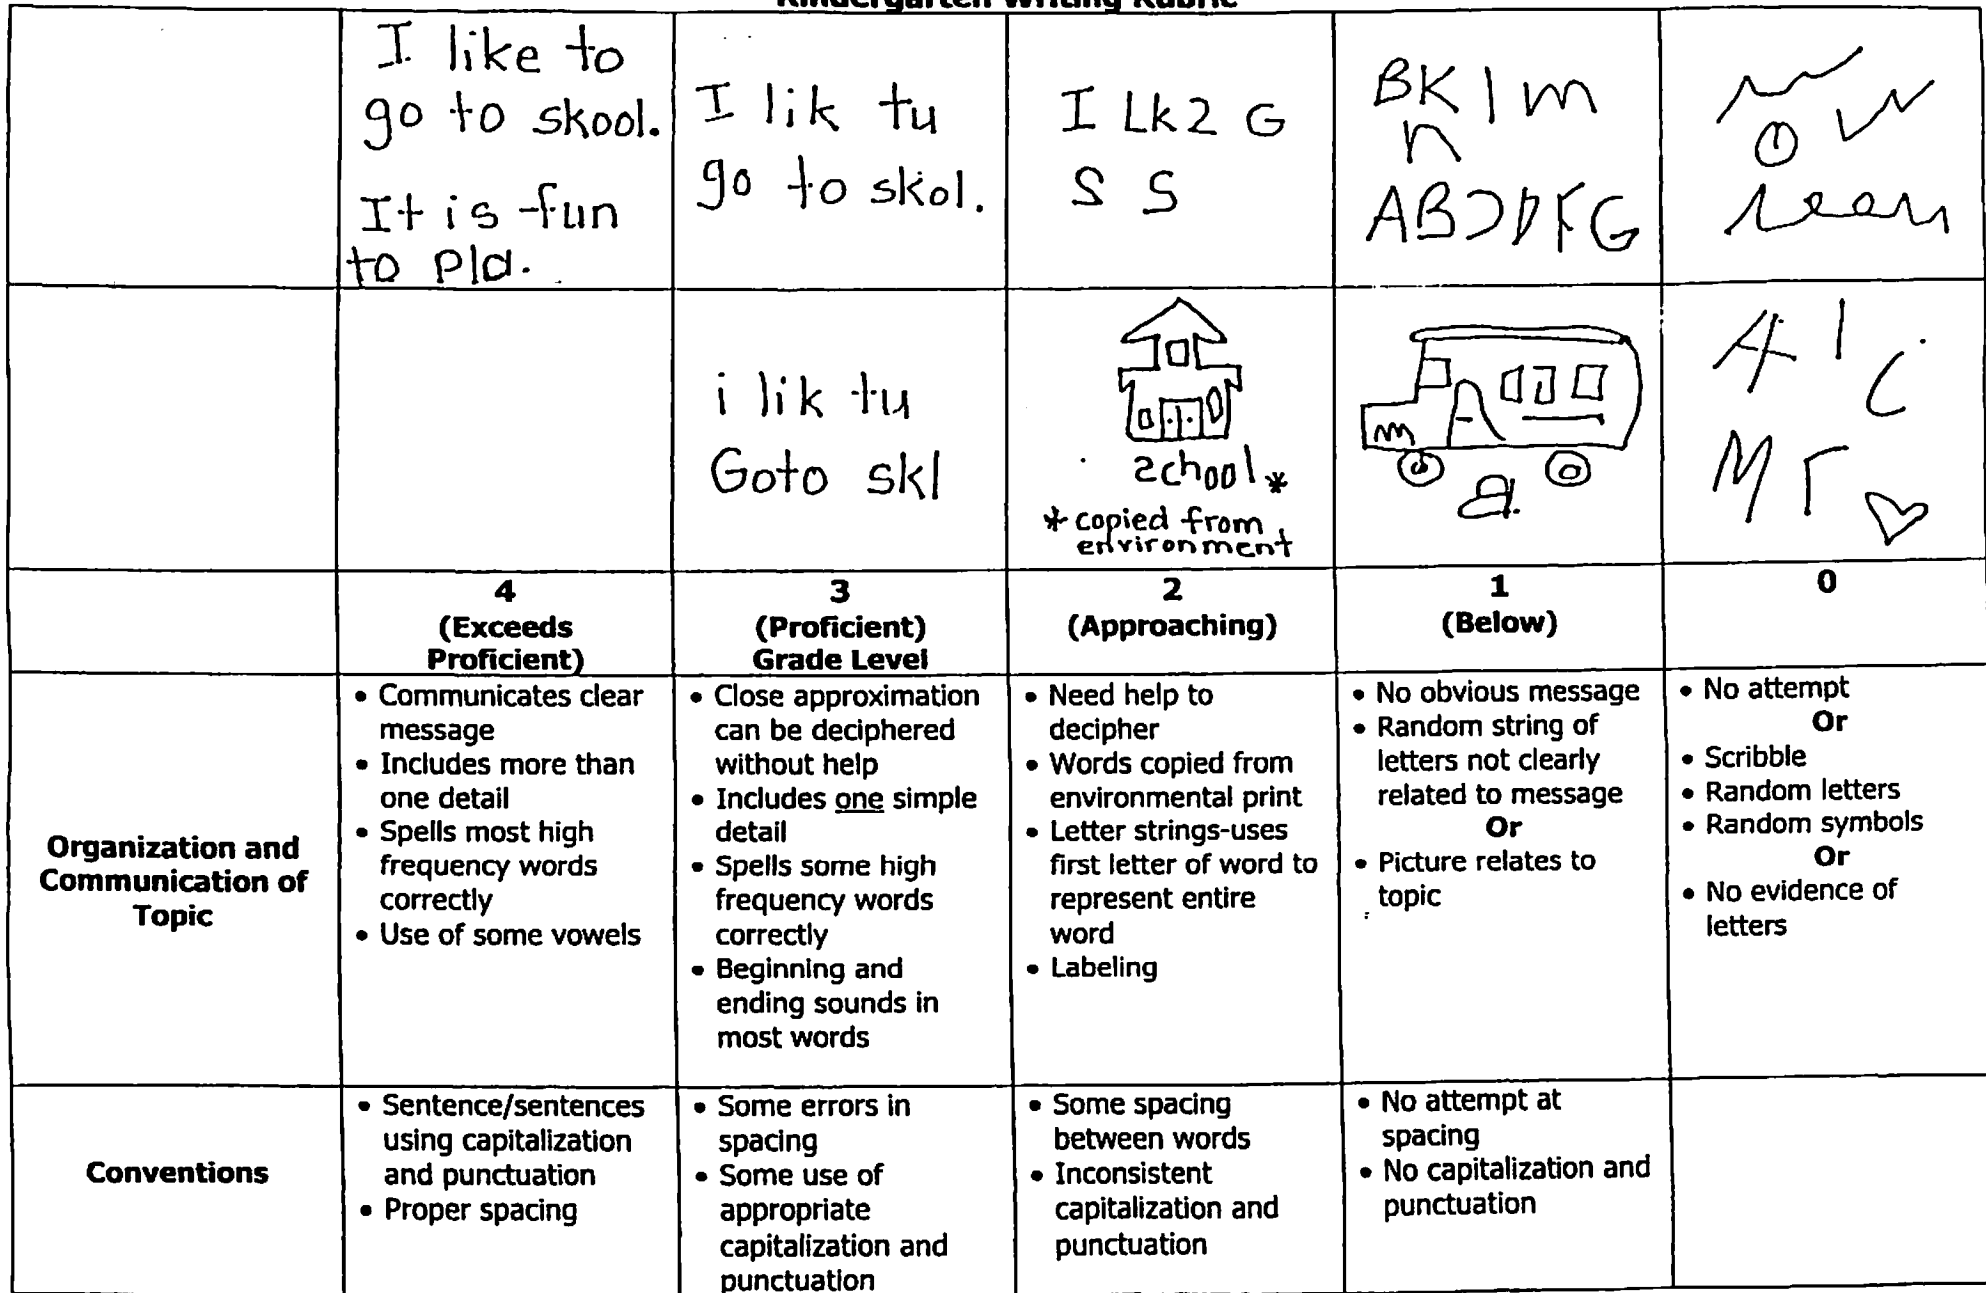 Kindergarten Writing Rubric
I like to
go to skool.
It is fun
to pla.
I lik tu
go to skol.
I Lk2 G
S S
BK l m
n
ABCDFG
i lik tu
Goto skl
school*
* copied from
environment
a
A l C
M T
4
(Exceeds
Proficient)
3
(Proficient)
Grade Level
2
(Approaching)
1
(Below)
0
Organization and
Communication of
Topic
• Communicates clear
message
• Includes more than
one detail
• Spells most high
frequency words
correctly
• Use of some vowels
• Close approximation
can be deciphered
without help
• Includes one simple
detail
• Spells some high
frequency words
correctly
• Beginning and
ending sounds in
most words
• Need help to
decipher
• Words copied from
environmental print
• Letter strings-uses
first letter of word to
represent entire
word
• Labeling
• No obvious message
• Random string of
letters not clearly
related to message
Or
• Picture relates to
topic
• No attempt
Or
• Scribble
• Random letters
• Random symbols
Or
• No evidence of
letters
Conventions
• Sentence/sentences
using capitalization
and punctuation
• Proper spacing
• Some errors in
spacing
• Some use of
appropriate
capitalization and
punctuation
• Some spacing
between words
• Inconsistent
capitalization and
punctuation
• No attempt at
spacing
• No capitalization and
punctuation